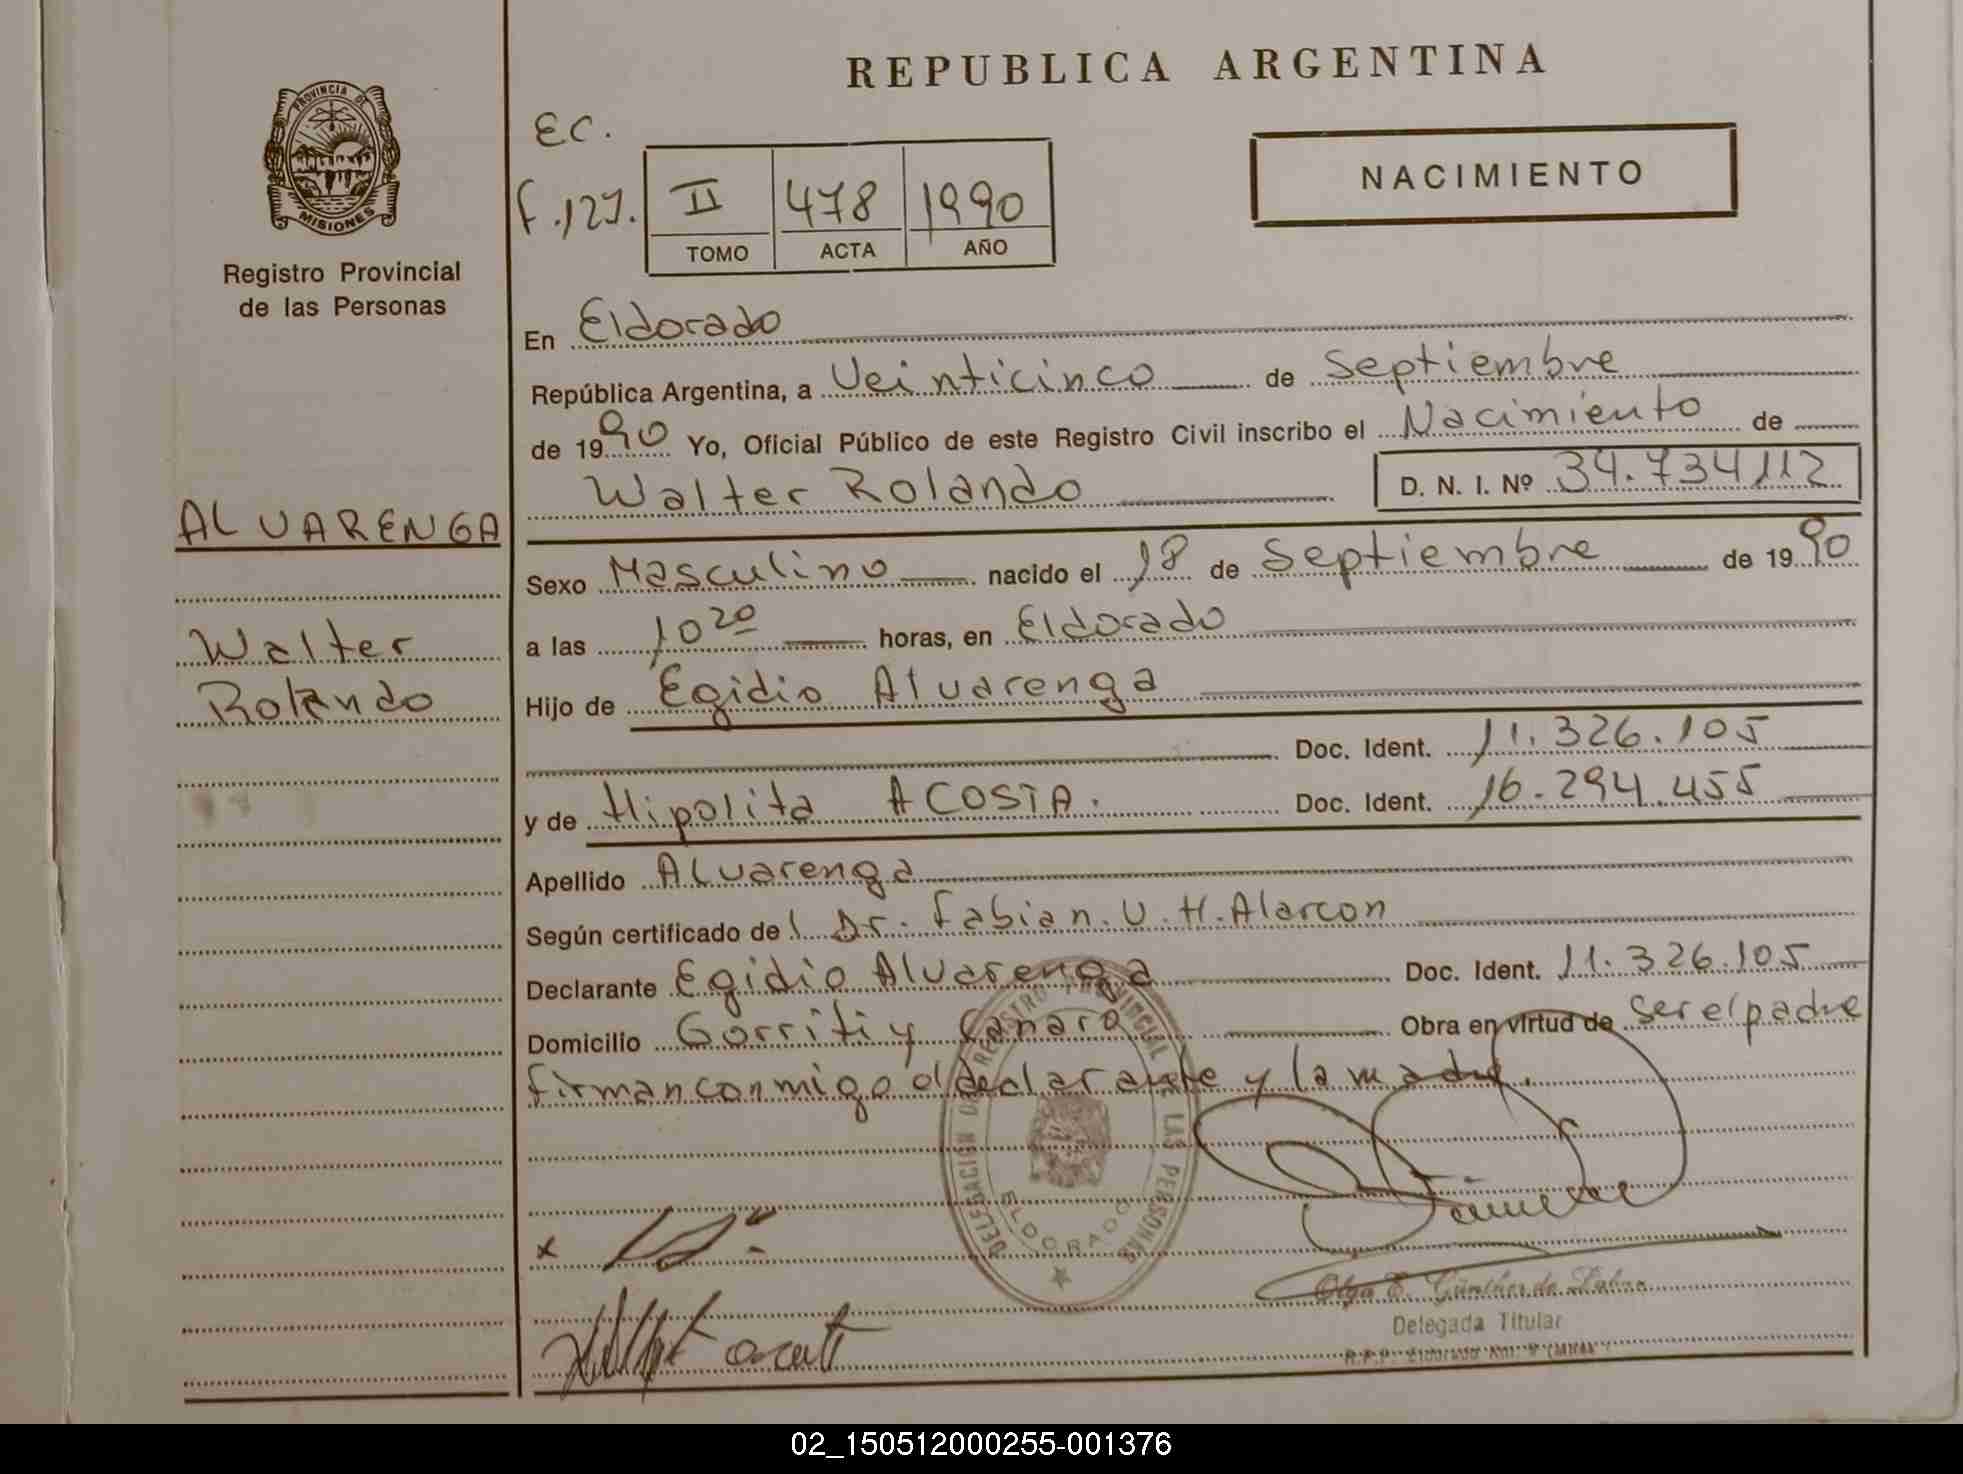 REPUBLICA ARGENTINA
PROVINCIA DE
MISIONES
Registro Provincial
de las Personas
EC.
F.127.
II 478 1990
TOMO ACTA AÑO
NACIMIENTO
En Eldorado
República Argentina, a Veinticinco de Septiembre
de 1990 Yo, Oficial Público de este Registro Civil inscribo el Nacimiento de
Walter Rolando D. N. I. Nº 34.734112
ALVARENGA
Walter
Rolando
Sexo Masculino nacido el 18 de Septiembre de 1990
a las 10 20 horas, en Eldorado
Hijo de Egidio Alvarenga
Doc. Ident. 11.326.105
y de Hipolita ACOSTA. Doc. Ident. 16.294.455
Apellido Alvarenga
Según certificado del Dr. Fabian.U.H.Alarcon
Declarante Egidio Alvarenga Doc. Ident. 11.326.105
Domicilio Gorriti y Canaro Obra en virtud de ser el padre
firman conmigo el declarante y la madre.
DELEGACION DEL REGISTRO PROVINCIAL DE LAS PERSONAS
ELDORADO
x
Olga E. Günther de
Delegada Titular
R.P.P. Eldorado Km. 9
02_150512000255-001376